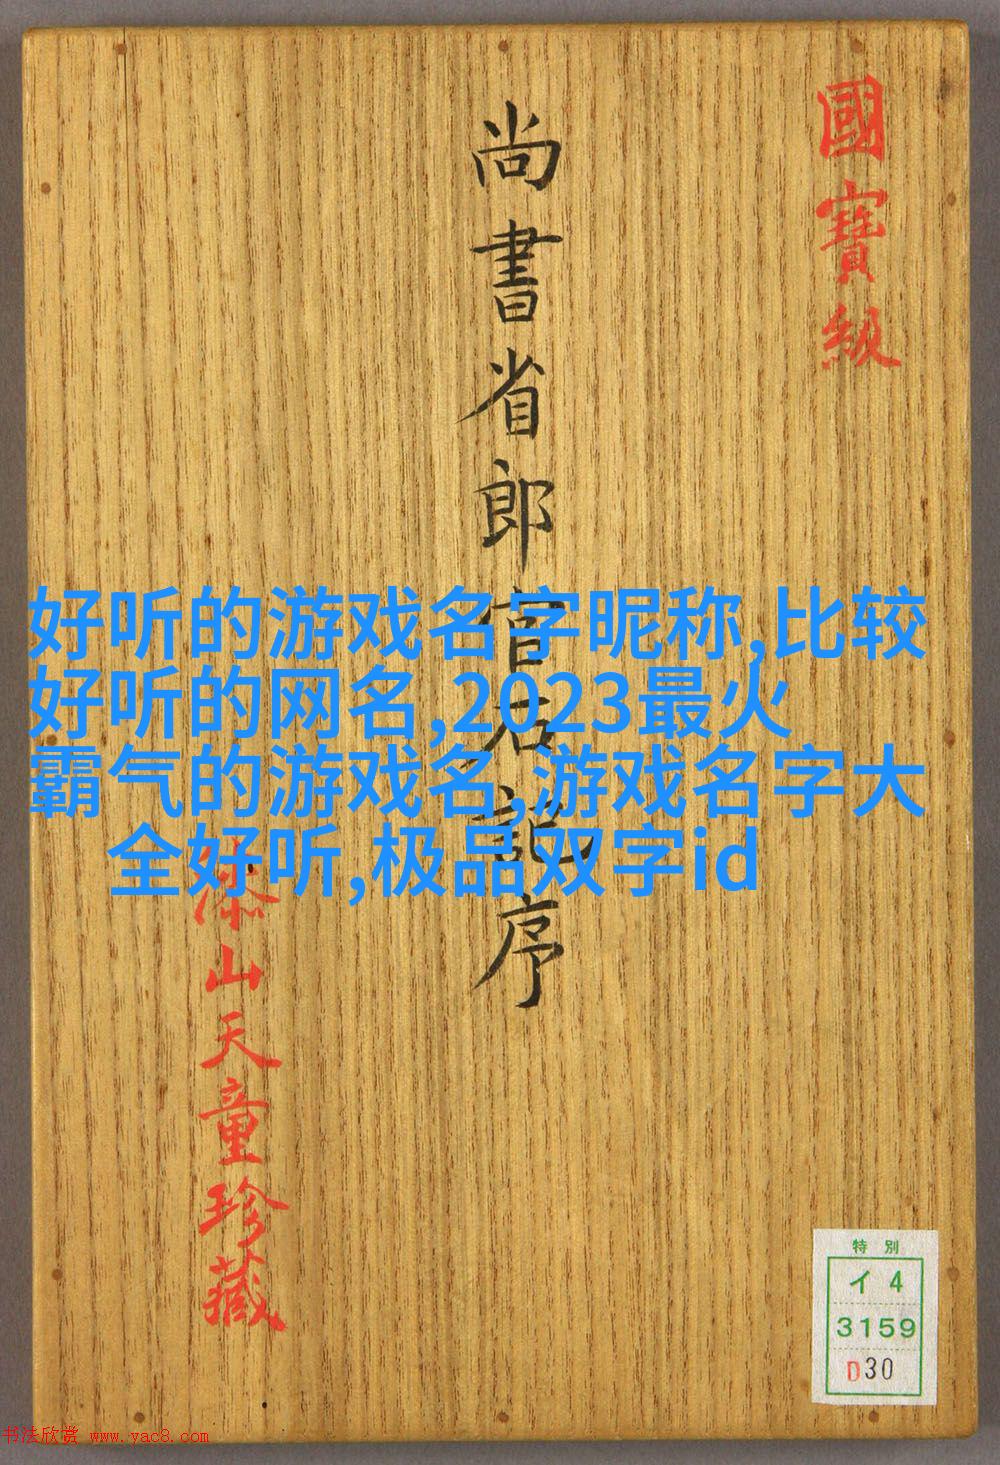 國寶級
尚書省郎官石記序
泰山天童珍藏
好听的游戏名字昵称,比较
好听的网名,2023最火
霸气的游戏名,游戏名字大
全好听,极品双字id
特別
イ4
3159
D30
书法欣赏 www.yac8.com